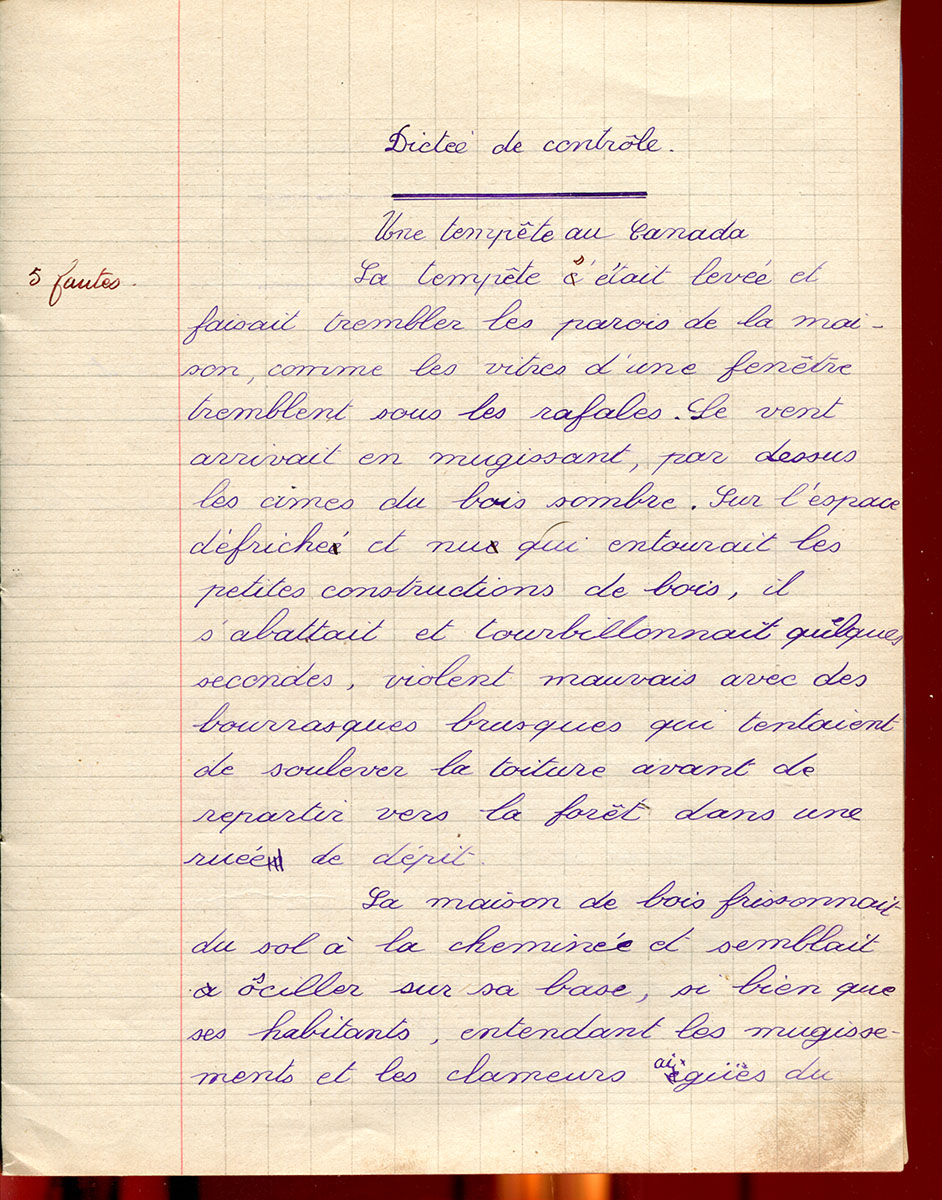 Dictée de contrôle.
Une tempête au Canada
5 fautes.
La tempête s'était levée et
faisait trembler les parois de la mai-
son, comme les vitres d'une fenêtre
tremblent sous les rafales. Le vent
arrivait en mugissant, par dessus
les cimes du bois sombre. Sur l'espace
défriché et nu qui entourait les
petites constructions de bois, il
s'abattait et tourbillonnait quelques
secondes, violent mauvais avec des
bourrasques brusques qui tentaient
de soulever la toiture avant de
repartir vers la forêt dans une
ruée de dépit.
La maison de bois frissonnait
du sol à la cheminée et semblait
osciller sur sa base, si bien que
ses habitants, entendant les mugisse-
ments et les clameurs aigüës du